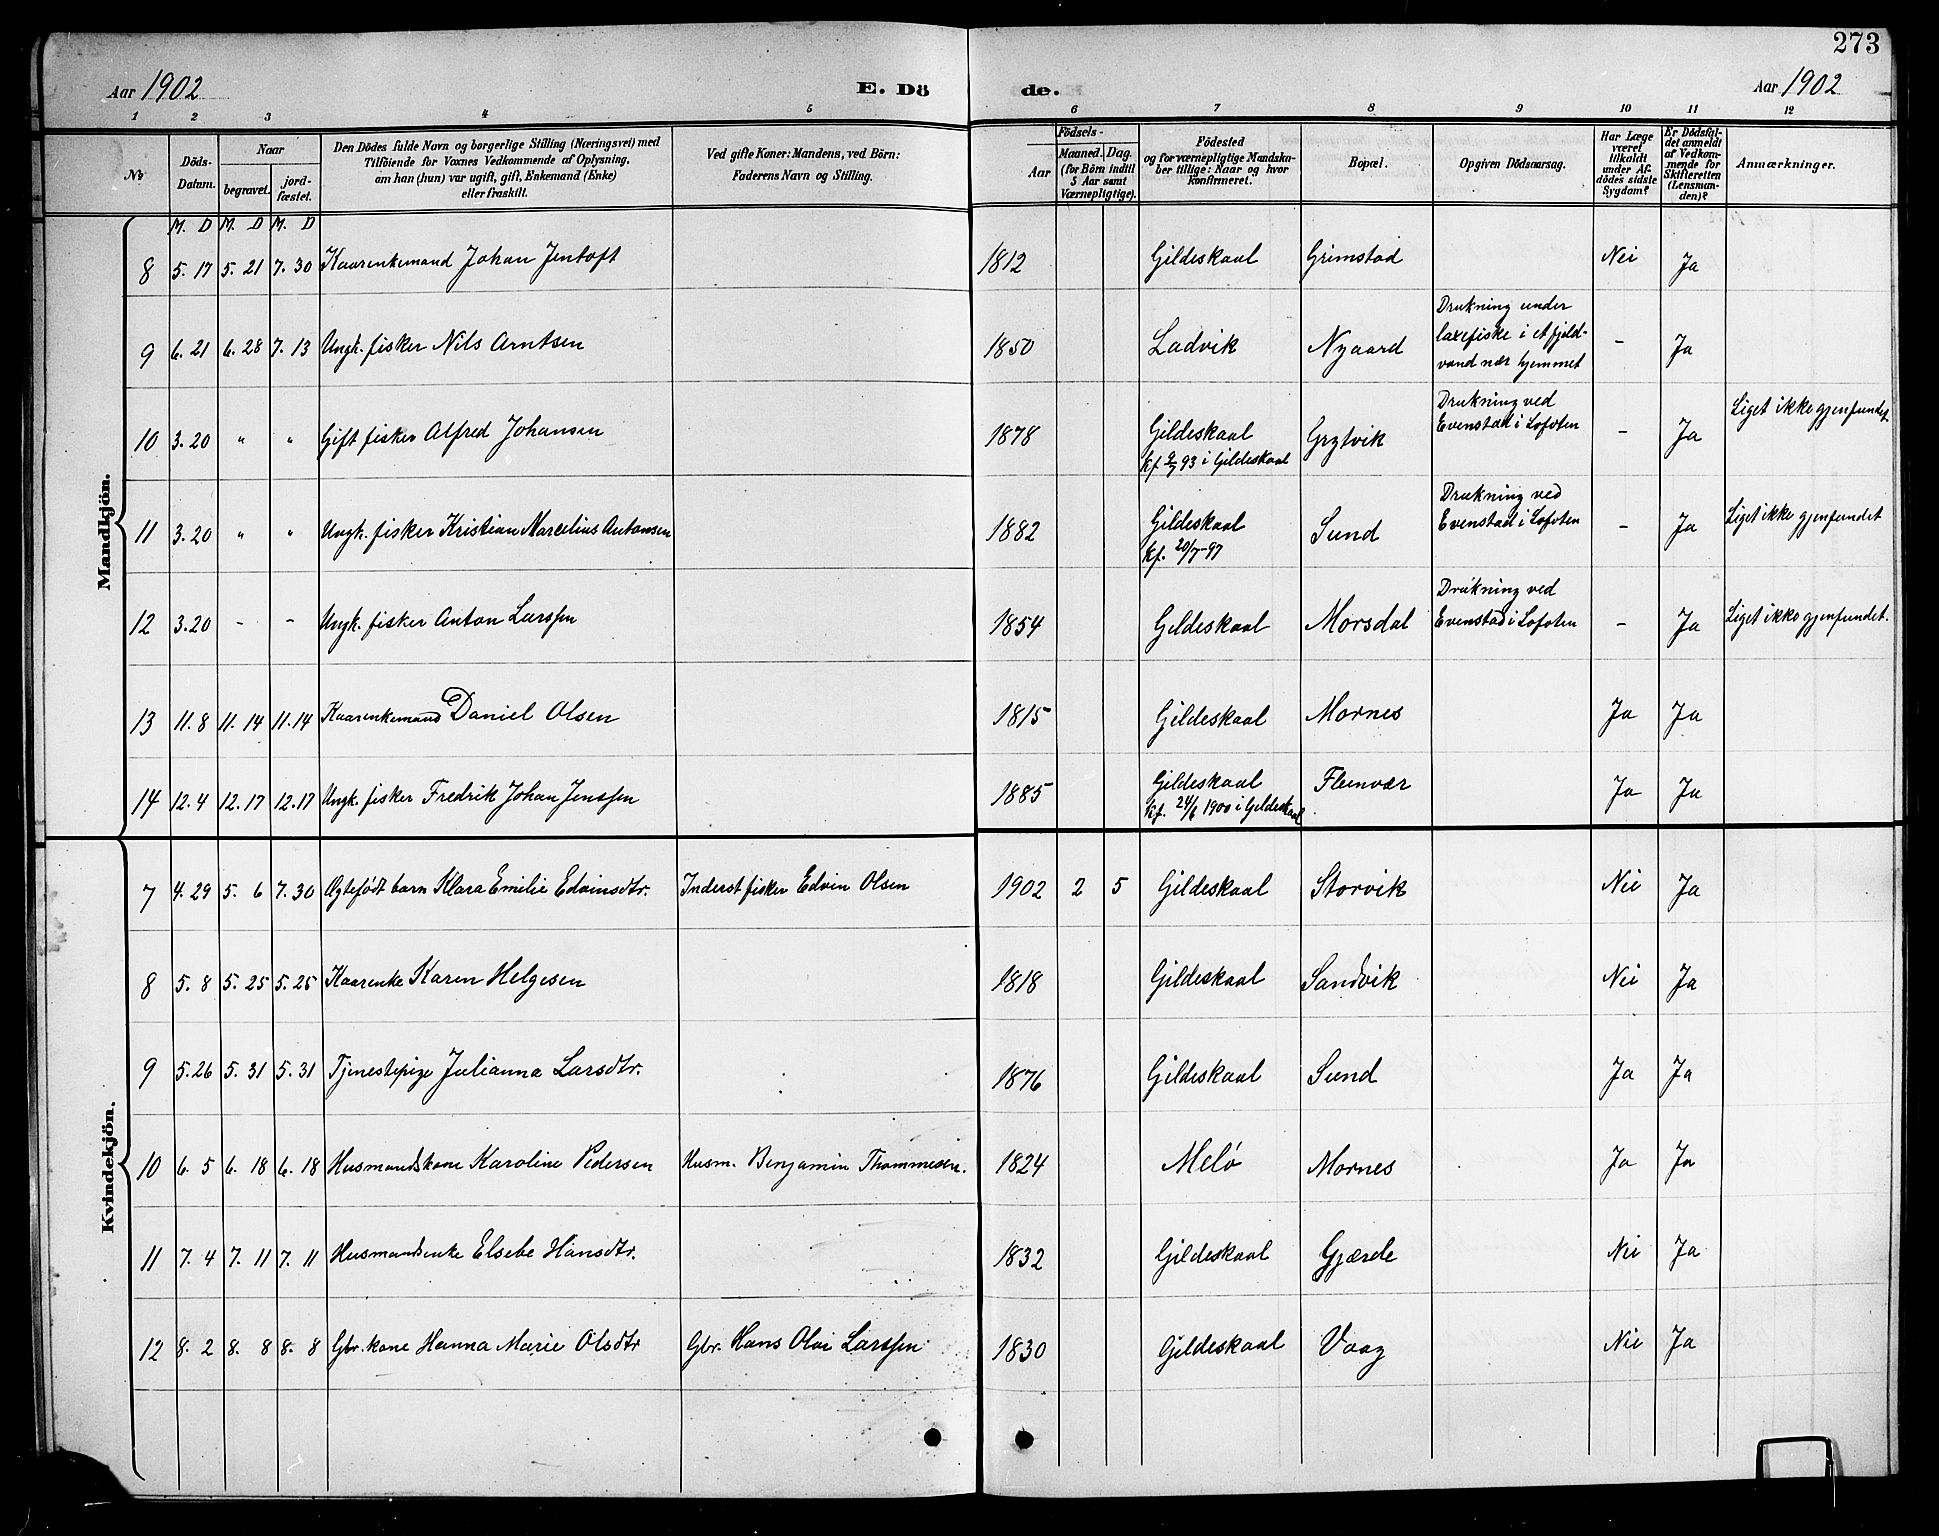 273
Aar 1902 E. Dö de. Aar 1902
1 2 3 4 5 6 7 8 9 10 11 12
No
Döds-Datum.
Naar
begravet.
jordfæstet.
Den Dödes fulde Navn og borgerlige Stilling (Næringsvei) med
Tilföiende for Voxnes Vedkommende af Oplysning,
om han (hun) var ugift, gift, Enkemand (Enke)
eller fraskilt.
Ved gifte Koner: Mandens, ved Börn:
Faderens Navn og Stilling.
Födsels-
Aar
Maaned. Dag.
(for Börn indtil
5 Aar samt
Værnepligtige).
Födested
og for værnepligtige Mandskaber tillige: Naar og hvor
konfirmeret.
Bopæl.
Opgiven Dödsaarsag.
Har Læge
været
tilkaldt
under Afdödes sidste
Sygdom?
Er Dödsfaldet anmeldt
af Vedkommende for
Skifteretten
(Lensmanden)?
Anmærkninger.
M. D M. D M. D
Mandkjön.
8 5. 17 5. 21 7. 30 Kaarenkemand Johan Jentoft 1812 Gildeskaal Grimstad Nei Ja
9 6. 21 6. 28 7. 13 Ungk. fisker Nils Arntsen 1850 Ladvik Nygaard Drukning under
laxefiske i et fjeld-
vand nær hjemmet - Ja
10 3. 20 " " Gift fisker Alfred Johansen 1878 Gildeskaal
kf. 9/7 93 i Gildeskaal Grytvik Drukning ved
Evenstad i Lofoten - Ja Liget ikke gjenfundet.
11 3. 20 " " Ungk. fisker Kristian Marcelius Antonsen 1882 Gildeskaal
kf. 20/7-97 Sund Drukning ved
Evenstad i Lofoten - Ja Liget ikke gjenfundet
12 3. 20 - - Ungk. fisker Anton Larssen 1854 Gildeskaal Morsdal Drukning ved
Evenstad i Lofoten - Ja Liget ikke gjenfundet.
13 11. 8 11. 14 11. 14 Kaarenkemand Daniel Olsen 1815 Gildeskaal Mornes Ja Ja
14 12. 4 12. 17 12. 17 Ungk. fisker Fredrik Johan Jenssen 1885 Gildeskaal
kf. 24/6 1900 i Gildeskaal Fleinvær Ja Ja
Kvindekjön.
7 4. 29 5. 6 7. 30 Ægtefødt barn Klara Emilie Edvinsdtr. Inderst fisker Edvin Olsen 1902 2 5 Gildeskaal Storvik Nei Ja
8 5. 8 5. 25 5. 25 Kaarenke Karen Helgesen 1818 Gildeskaal Sandvik Nei Ja
9 5. 26 5. 31 5. 31 Tjenestepige Julianna Larsdtr. 1876 Gildeskaal Sund Ja Ja
10 6. 5 6. 18 6. 18 Husmandskone Karoline Pedersen Husm. Benjamin Thommesen. 1824 Melø Mornes Ja Ja
11 7. 4 7. 11 7. 11 Husmandsenke Elsebe Hansdtr. 1832 Gildeskaal Gjærde Nei Ja
12 8. 2 8. 8 8. 8 Gbr. kone Hanna Marie Olsdtr Gbr. Hans Olai Larssen 1830 Gildeskaal Vaag Nei Ja